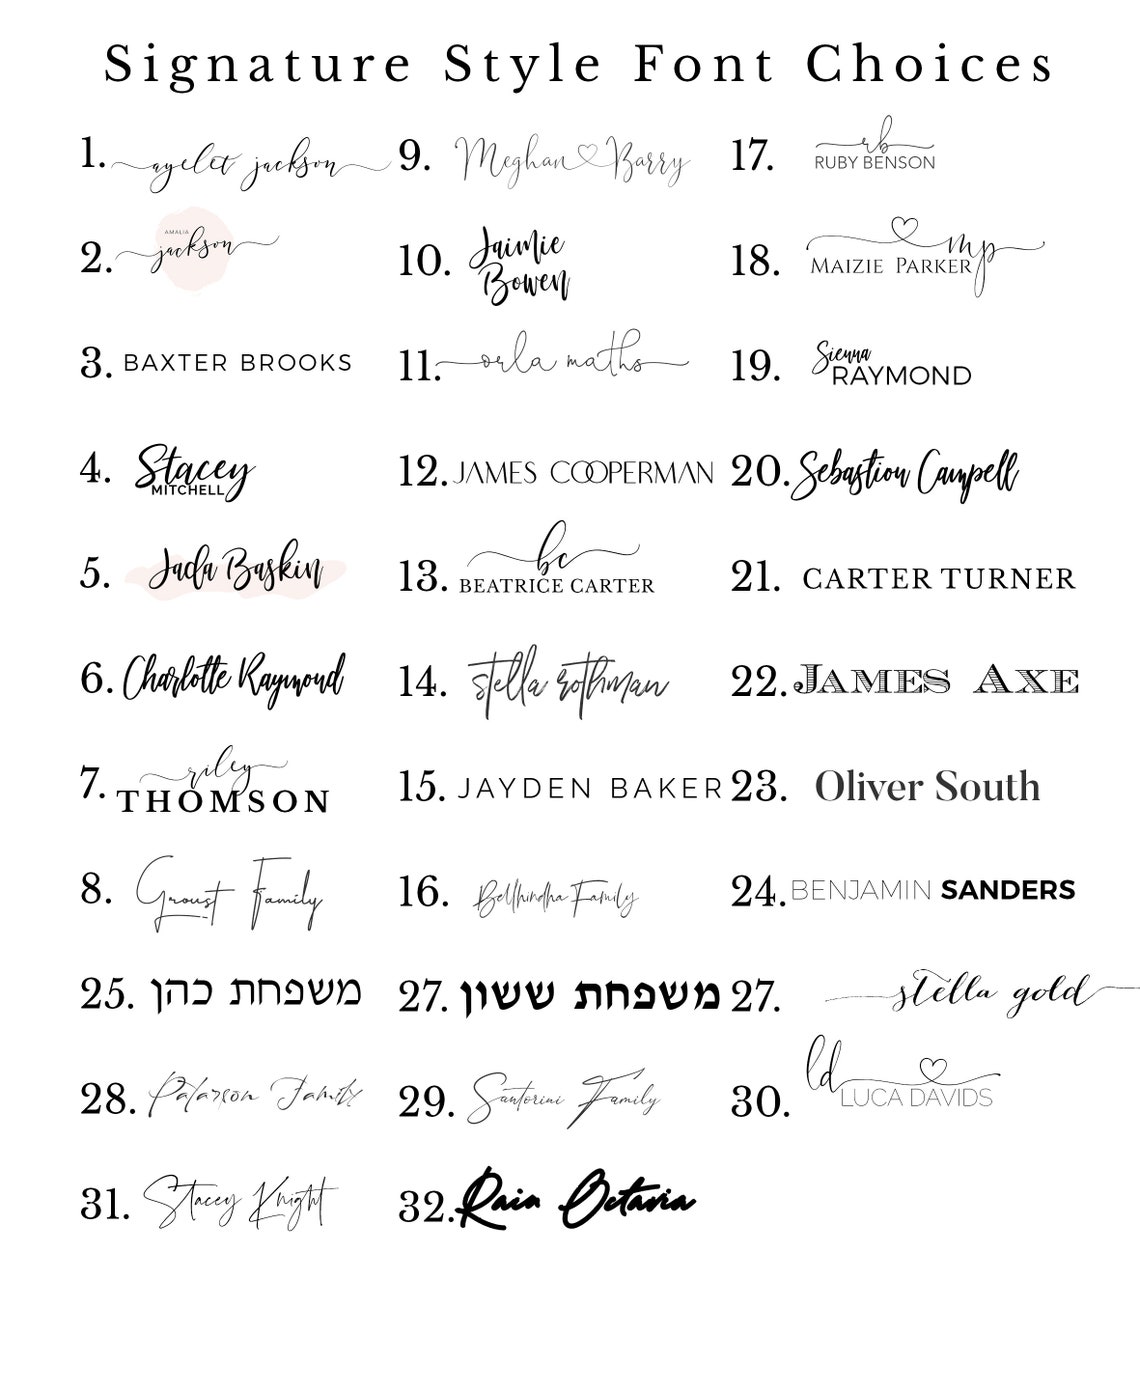 Signature Style Font Choices
1. ayelet jackson
2. AMALIA
jackson
3. BAXTER BROOKS
4. Stacey
MITCHELL
5. Jada Baskin
6. Charlotte Raymond
7. riley
THOMSON
8. Groust Family
9. Meghan♡Barry
10. Jaimie
Bowen
11. orla maths
12. JAMES COOPERMAN
13. bc
BEATRICE CARTER
14. stella rothman
15. JAYDEN BAKER
16. Bellhindha Family
17. rb
RUBY BENSON
18. mp
MAIZIE PARKER
19. Sienna
RAYMOND
20. Sebastion Campell
21. CARTER TURNER
22. JAMES AXE
23. Oliver South
24. BENJAMIN SANDERS
25. משפחת כהן
27. משפחת ששון
27. stella gold
28. Patarson Family
29. Santorini Family
30. ld
LUCA DAVIDS
31. Stacey Knight
32. Rain Octavia